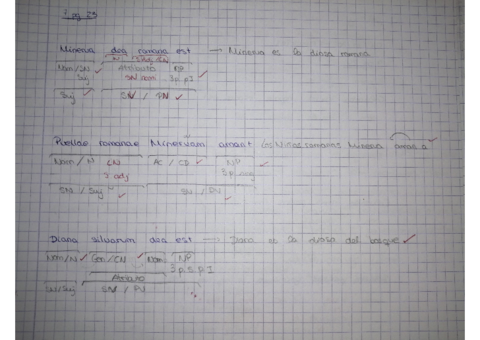 pg 23
Minerva dea romana est → Minerva es la diosa romana
Nom/SN Atributo NP
Suj SN nom 3p.
Suj SN / PN
Puellae romanae Minervam amant Niñas romanas Minerva
Nom / N CN AC / CD NP
adj
SN / Suj SV / PV
Diana silvarum dea est → Diana es la diosa del bosque
Nom/N Gen/CN Nom NP
Atributo
SN/Suj SN / PN